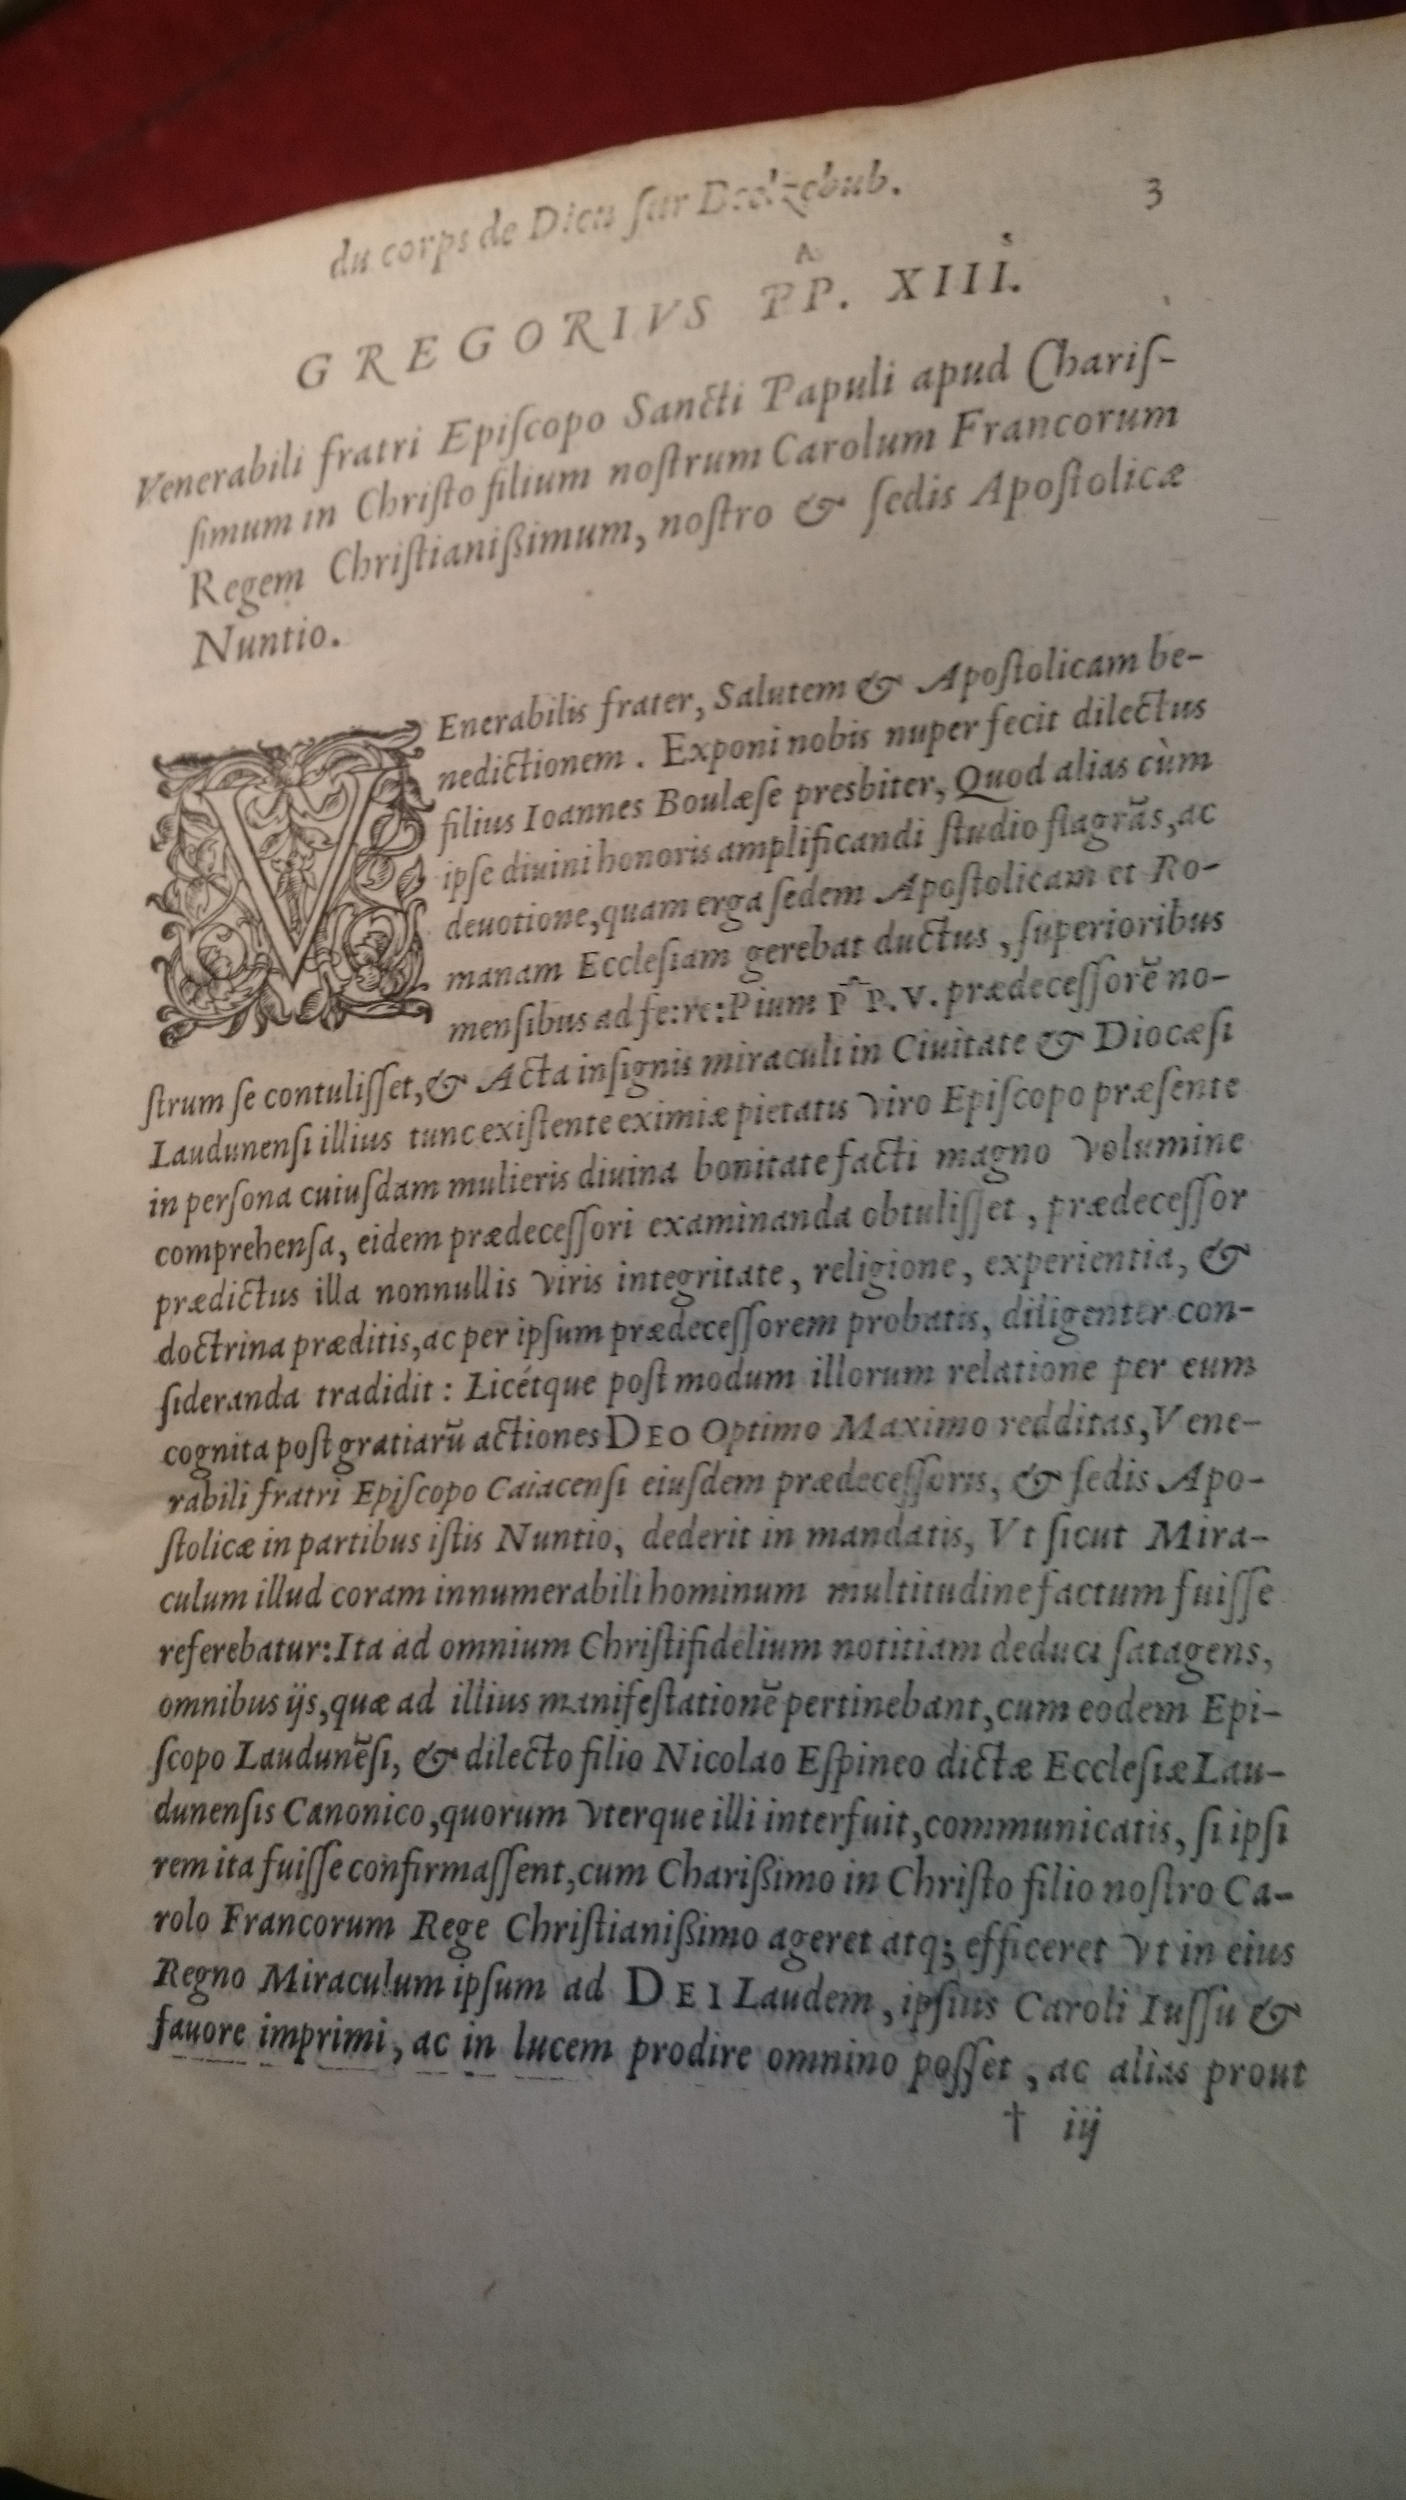 du corps de Dieu ſur Beelzebub. 3
GREGORIVS PP. XIII.
Venerabili fratri Epiſcopo Sancti Papuli apud Chariſ-
ſimum in Chriſto filium noſtrum Carolum Francorum
Regem Chriſtianißimum, noſtro & ſedis Apoſtolicæ
Nuntio.
VEnerabilis frater, Salutem & Apoſtolicam be-
nedictionem. Exponi nobis nuper fecit dilectus
filius Ioannes Boulæſe presbiter, Quod alias cùm
ipſe diuini honoris amplificandi ſtudio flagrãs, ac
deuotione, quam erga ſedem Apoſtolicam et Ro-
manam Eccleſiam gerebat ductus, ſuperioribus
menſibus ad fe: re: Pium PP. V. prædeceſſorẽ no-
ſtrum ſe contuliſſet, & Acta inſignis miraculi in Ciuitate & Diocæſi
Laudunenſi illius tunc exiſtente eximiæ pietatis viro Epiſcopo præſente
in perſona cuiuſdam mulieris diuina bonitate facti magno volumine
comprehenſa, eidem prædeceſſori examinanda obtuliſſet, prædeceſſor
prædictus illa nonnullis viris integritate, religione, experientia, &
doctrina præditis, ac per ipſum prædeceſſorem probatis, diligenter con-
ſideranda tradidit: Licétque poſt modum illorum relatione per eum
cognita poſt gratiarũ actiones DEO Optimo Maximo redditas, Vene-
rabili fratri Epiſcopo Caiacenſi eiuſdem prædeceſſoris, & ſedis Apo-
ſtolicæ in partibus iſtis Nuntio, dederit in mandatis, Vt ſicut Mira-
culum illud coram innumerabili hominum multitudine factum fuiſſe
referebatur: Ita ad omnium Chriſtifidelium notitiam deduci ſatagens,
omnibus ijs, quæ ad illius manifeſtationẽ pertinebant, cum eodem Epi-
ſcopo Laudunẽſi, & dilecto filio Nicolao Eſpineo dictæ Eccleſiæ Lau-
dunenſis Canonico, quorum vterque illi interfuit, communicatis, ſi ipſi
rem ita fuiſſe confirmaſſent, cum Charißimo in Chriſto filio noſtro Ca-
rolo Francorum Rege Chriſtianißimo ageret atq; efficeret vt in eius
Regno Miraculum ipſum ad DEI Laudem, ipſius Caroli Iuſſu &
fauore imprimi, ac in lucem prodire omnino poſſet, ac alias prout
† iij